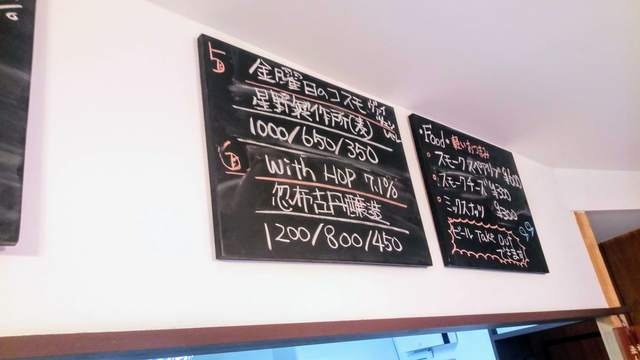 5
金曜日のコスモ
星野製作所(麦)
1000/650/350
6
With HOP 7.1%
忽布古丹醸造
1200/800/450
・Food・軽いおつまみ
・スモークスペアリブ
・スモークチーズ ¥300
・ミックスナッツ ¥300
ビール Take Out
できます